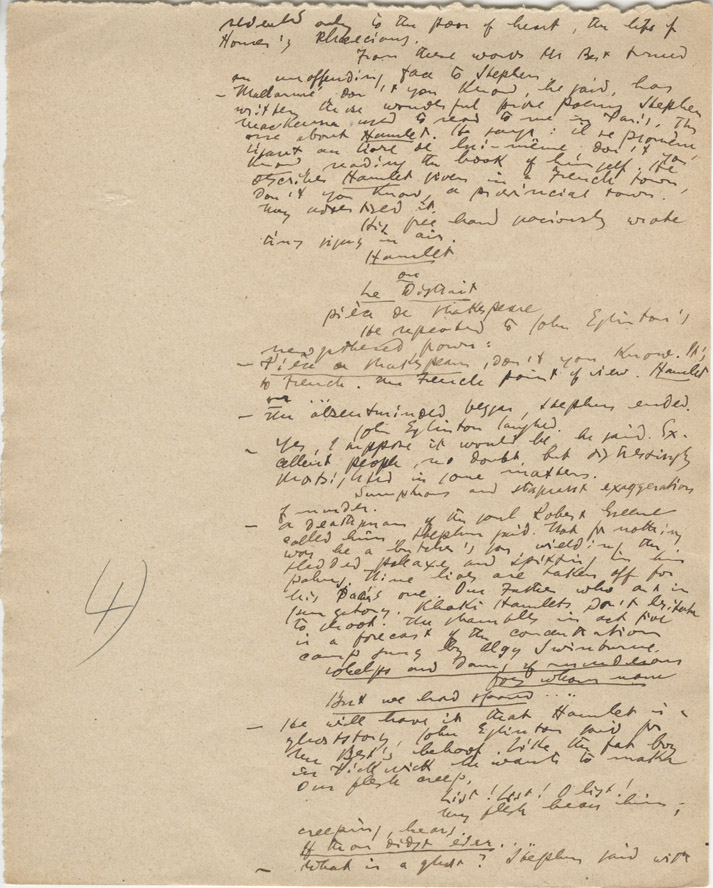 revealed only to the poor of heart, the life of
Homer's Phaeacians.
From these words Mr Best turned
an unoffending face to Stephen.
— Mallarmé, don't you know, he said, has
written those wonderful prose poems Stephen
MacKenna used to read to me in Paris. The
one about Hamlet. He says: il se promène,
lisant au livre de lui-même, don't you
know, reading the book of himself. He
describes Hamlet given in a French town,
don't you know, a provincial town.
They advertised it.
His free hand graciously wrote
tiny signs in air.
Hamlet
ou
Le Distrait
pièce de Shakespeare
He repeated to John Eglinton's
newgathered frown:
— Pièce de Shakespeare, don't you know. It's
so French, the French point of view. Hamlet
ou ...
— The absentminded beggar, Stephen ended.
John Eglinton laughed.
— Yes, I suppose it would be, he said. Ex-
cellent people, no doubt, but distressingly
shortsighted in some matters.
Sumptuous and stagnant exaggeration
of murder.
— A deathsman of the soul Robert Greene
called him, Stephen said. Not for nothing
was he a butcher's son wielding the
sledded poleaxe and spitting in his
palm. Nine lives are taken off for
his father's one. Our Father who art in
purgatory. Khaki Hamlets don't hesitate
to shoot. The shambles in act five
is a forecast of the concentration
camp sung by Algy Swinburne.
Whelps and dams of murderous
foes whom none
But we had spared ....
— He will have it that Hamlet is a
ghoststory, John Eglinton said for
Mr Best's behoof. Like the fat boy
in Pickwick he wants to make
our flesh creep.
List! List! O list!
My flesh hears him:
creeping, hears.
If thou didst ever ....
— What is a ghost? Stephen said with
4)